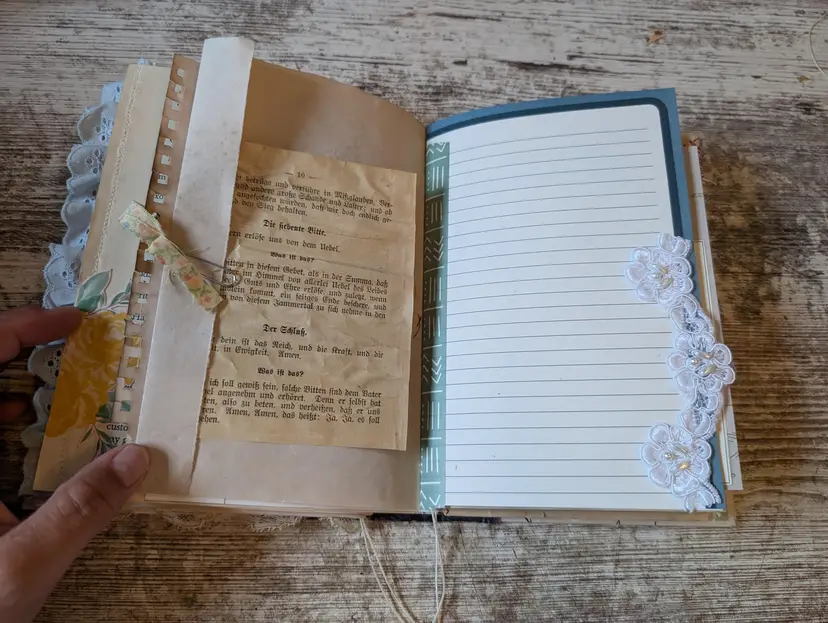 — 10 —
betrüge und verführe in Mißglauben, Ver-
und andere große Schande und Laster; und ob
angefochten würden, daß wir doch endlich ge-
und den Sieg behalten.
Die siebente Bitte.
ern erlöse uns von dem Uebel.
Was ist das?
bitten in diesem Gebet, als in der Summa, daß
Vater im Himmel von allerlei Uebel des Leibes
Guts und Ehre erlöse, und zuletzt, wenn
ndlein kommt, ein seliges Ende beschere, und
von diesem Jammertal zu sich nehme in den
Der Schluß.
dein ist das Reich, und die Kraft, und die
t. in Ewigkeit. Amen.
Was ist das?
ich soll gewiß sein, solche Bitten sind dem Vater
el angenehm und erhöret. Denn er selbst hat
en, also zu beten, und verheißen, daß er uns
ren. Amen, Amen, das heißt: Ja, Ja, es soll
ehen.
custo